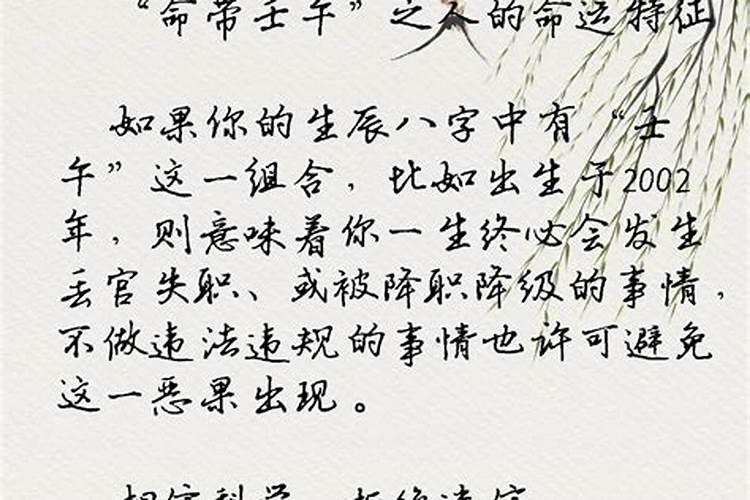 “命带壬午”之人的命运特征
如果你的生辰八字中有“壬
午”这一组合，比如出生于2002
年，则意味着你一生终必会发生
丢官失职、或被降职降级的事情，
不做违法违规的事情也许可避免
这一恶果出现。
相信科学，拒绝迷信